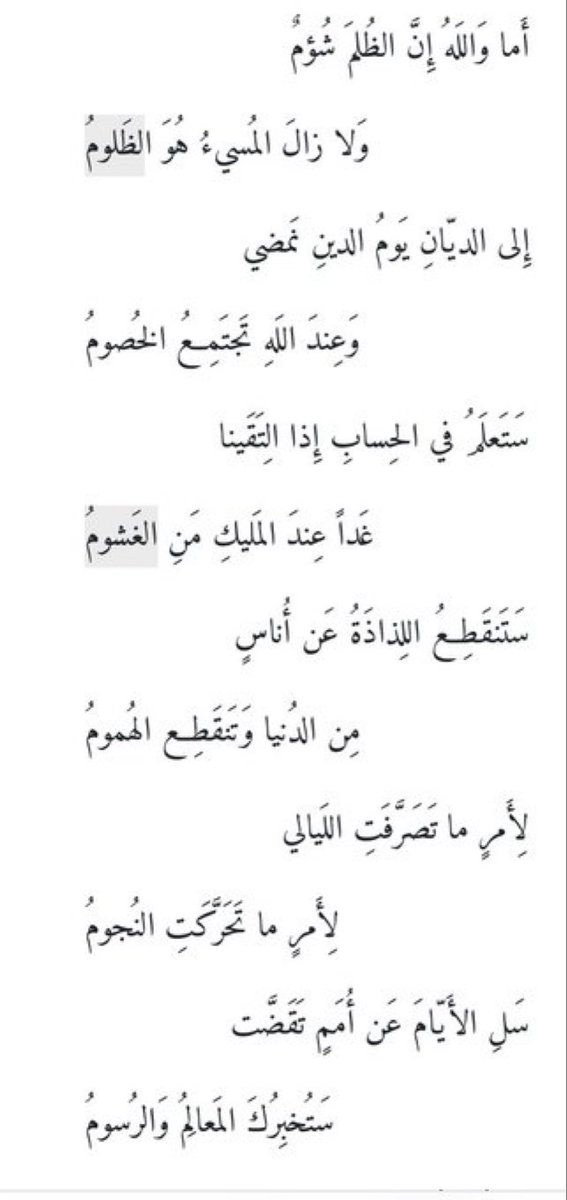 أَما وَاللَهُ إِنَّ الظُلمَ شُؤمٌ
وَلا زالَ المُسيءُ هُوَ الظَلومُ
إِلى الديّانِ يَومُ الدينِ نَمضي
وَعِندَ اللَهِ تَجتَمِعُ الخُصومُ
سَتَعلَمُ في الحِسابِ إِذا اِلتَقَينا
غَداً عِندَ المَليكِ مَنِ الغَشومُ
سَتَنقَطِعُ اللِذاذَةُ عَن أُناسٍ
مِن الدُنيا وَتَنقَطِع الهُمومُ
لِأَمرٍ ما تَصَرَّفَتِ اللَيالي
لِأَمرٍ ما تَحَرَّكَتِ النُجومُ
سَلِ الأَيّامَ عَن أُمَمٍ تَقَضَّت
سَتُخبِرُكَ المَعالِمُ وَالرُسومُ